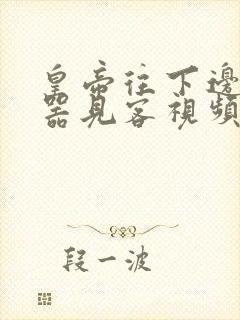 皇帝往下邊
器見客視頻
段一波